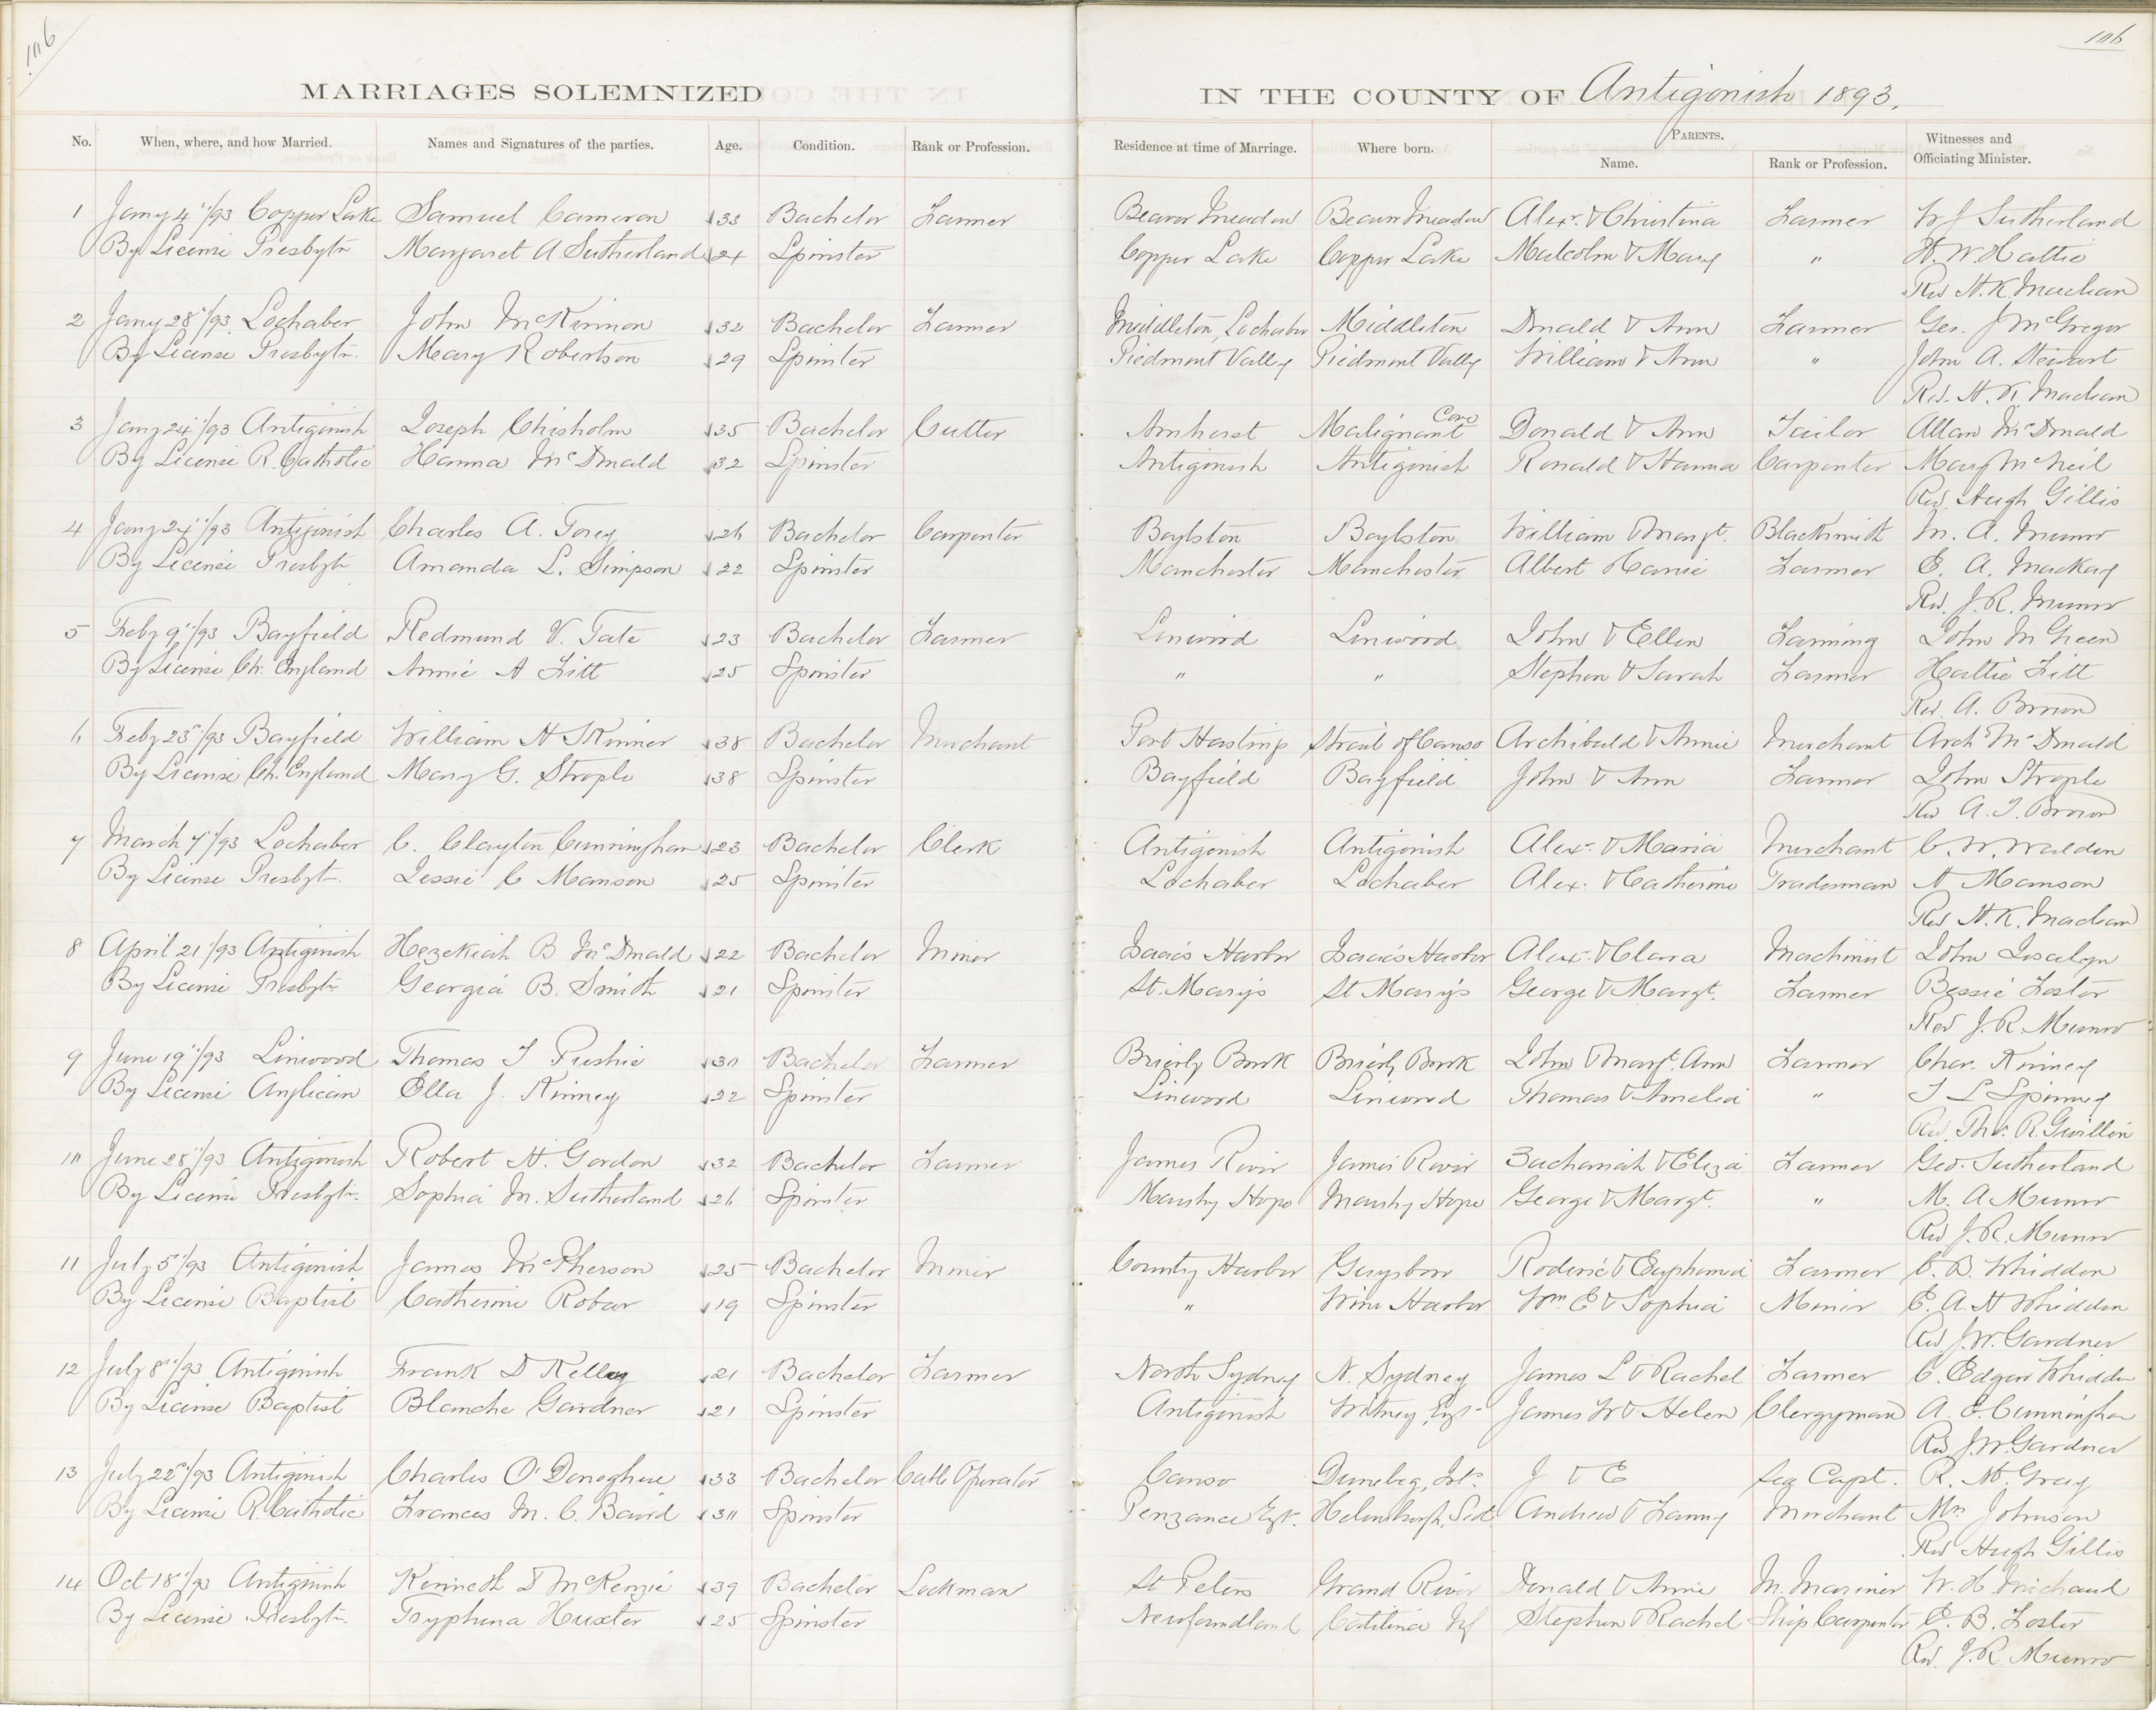 106
106
MARRIAGES SOLEMNIZED IN THE COUNTY OF Antigonish 1893.
No. When, where, and how Married. Names and Signatures of the parties. Age. Condition. Rank or Profession. Residence at time of Marriage. Where born. PARENTS. Name. Rank or Profession. Witnesses and Officiating Minister.
1 Jany 4"/93 Copper Lake Samuel Cameron 33 Bachelor Farmer Beaver Meadow Beaver Meadow Alexr. & Christina Farmer W J Sutherland
By License Presbytn Margaret A Sutherland 24 Spinster Copper Lake Copper Lake Malcolm & Mary " H. W. Hattie
Rev H. K. Maclean
2 Jany 28"/93 Lochaber John McKinnon 32 Bachelor Farmer Middleton, Lochaber Middleton Donald & Ann Farmer Geo. J McGregor
By License Presbytn. Mary Robertson 29 Spinster Piedmont Valley Piedmont Valley William & Ann " John A. Stewart
Rev. H. K Maclean
3 Jany 24"/93 Antigonish Joseph Chisholm 35 Bachelor Cutter Amherst Malignant Cove Donald & Ann Tailor Allan McDonald
By License R. Catholic Hanna McDonald 32 Spinster Antigonish Antigonish Ronald & Hanna Carpenter Mary McNeil
Rev. Hugh Gillis
4 Jany 24"/93 Antigonish Charles A. Torey 26 Bachelor Carpenter Boylston Boylston William & Margt. Blacksmith M. A. Munro
By License Presbytn Amanda L. Simpson 22 Spinster Manchester Manchester Albert Farmer E. A. Mackay
Rev. J. R. Munro
5 Feby 9"/93 Bayfield Redmund V. Tate 23 Bachelor Farmer Linwood Linwood John & Ellen Farming John M Green
By License Ch. England Annie A Fitt 25 Spinster " " Stephen & Sarah Farmer Hattie Fitt
Rev. A. Brown
6 Feby 23"/93 Bayfield William H Skinner 38 Bachelor Merchant Port Hastings Strait of Canso Archibald & Annie Merchant Arch McDonald
By License Ch. England Mary G. Strople 38 Spinster Bayfield Bayfield John & Ann Farmer John Strople
Rev A. T. Brown
7 March 7"/93 Lochaber C. Clayton Cunningham 23 Bachelor Clerk Antigonish Antigonish Alexr. & Maria Merchant C. W. Walden
By License Presbyt. Jessie C Manson 25 Spinster Lochaber Lochaber Alex. & Catherine Tradesman A Manson
Rev H. K. Maclean
8 April 21"/93 Antigonish Hezekiah B McDonald 22 Bachelor Miner Isaac's Harbor Isaac's Harbor Alexr. & Clara Machinist John
By License Presbytn Georgia B. Smith 21 Spinster St. Mary's St Mary's George & Margt. Farmer Bessie Foster
Rev J. R. Munro
9 June 19"/93 Linwood Thomas J Pushie 30 Bachelor Farmer Brierly Brook Brierly Brook John & Margt. Ann Farmer Chas. Kinney
By License Anglican Ella J. Kinney 22 Spinster Linwood Linwood Thomas & Amelia " T L Spinney
Rev. Thos. R. Gwillim
10 June 28"/93 Antigonish Robert H. Gordon 32 Bachelor Farmer James River James River Zachariah & Eliza Farmer Geo. Sutherland
By License Presbytn. Sophia M. Sutherland 26 Spinster Marshy Hope Marshy Hope George & Margt. " M. A Munro
Rev J. R. Munro
11 July 5"/93 Antigonish James McPherson 25 Bachelor Miner Country Harbor Guysboro Roderic & Euphemia Farmer C. B. Whidden
By License Baptist Catherine Robar 19 Spinster " Wine Harbor Wm E & Sophia Miner E. A. H Whidden
Rev J. W. Gardner
12 July 8"/93 Antigonish Frank D Kelley 21 Bachelor Farmer North Sydney N. Sydney James L & Rachel Farmer C. Edgar Whidden
By License Baptist Blanche Gardner 21 Spinster Antigonish Witney, Eng. James W & Helen Clergyman A. E. Cunningham
Rev J. W. Gardner
13 July 22"/93 Antigonish Charles O'Donoghue 33 Bachelor Cable Operator Canso Dunebeg, J & E Sea Capt. R. M. Gray
By License R. Catholic Frances M. C. Baird 30 Spinster Penzance Eng. Helensburgh, Scd Andrew & Fanny Merchant Mrs Johnson
Rev Hugh Gillis
14 Oct 18"/93 Antigonish Kenneth D McKenzie 39 Bachelor Lockman St Peters Grand River Donald & Annie M. Mariner W. H. Michaud
By License Presbyt. Tryphena Huxter 25 Spinster Newfoundland Catilina Nf Stephen & Rachel Ship Carpenter E. B. Foster
Rev. J. R. Munro